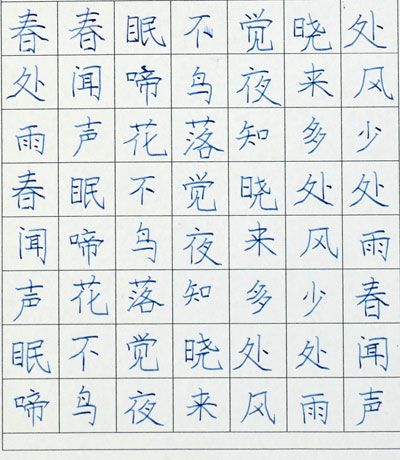 春春眠不觉晓处
处闻啼鸟夜来风
雨声花落知多少
春眠不觉晓处处
闻啼鸟夜来风雨
声花落知多少春
眠不觉晓处处闻
啼鸟夜来风雨声